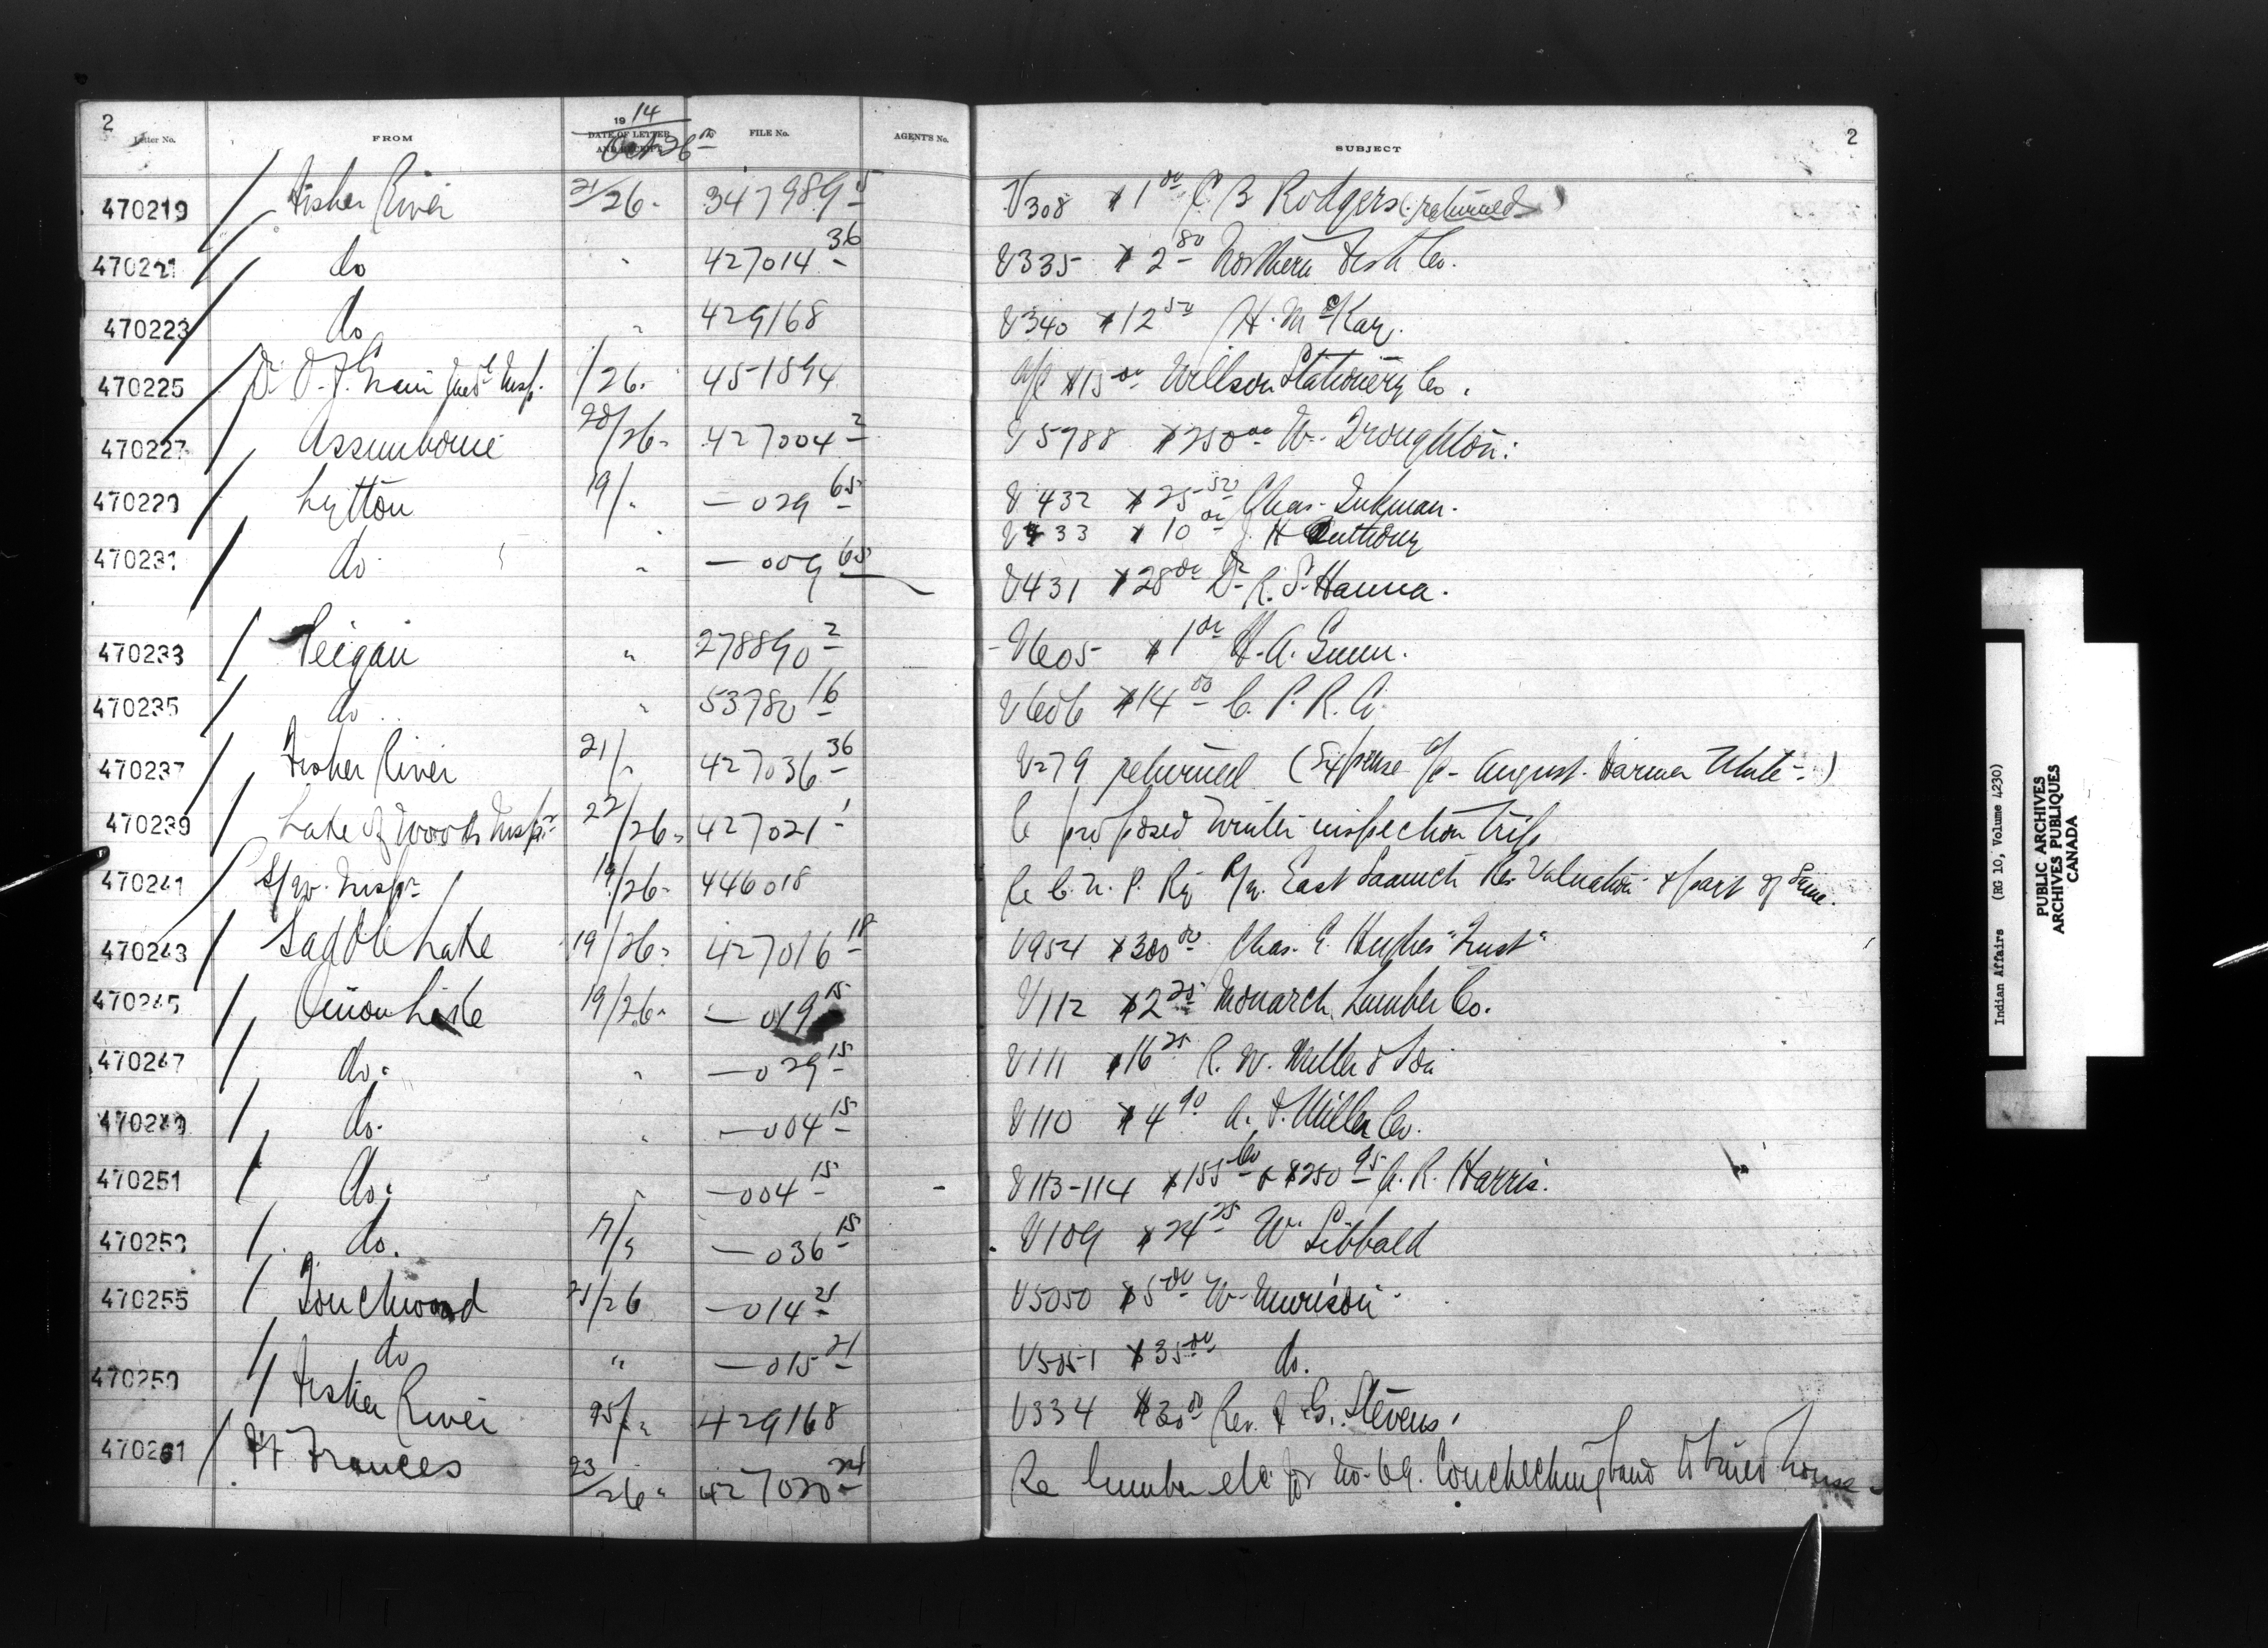 2
2
Letter No. FROM 1914 DATE OF LETTER AND RECEIPT FILE No. AGENT'S No. SUBJECT
Oct 26
470219 Fisher River 21/26 347989-5 V308 $1.00 C B Rodgers (returned)
470221 do " 427014-36 V335 $2.80 Northern Fish Co.
470223 do " 429168 V340 $12.50 H. McKay.
470225 Dr O.J. Grain Med Insp. /26 451894 a/c $15.00 Willson Stationery Co.
470227 Assiniboine 20/26 427004-2 V5788 $250.00 W. Troughton.
470229 Lytton 19/" —029-65 V432 $25.50 Chas. Inkman.
V433 $10.00 J. H Anthony
470231 do " —009-65 V431 $28.00 Dr R. S. Hanna.
470233 Peigan " 278890-2 V605 $1.00 H. A. Gunn.
470235 do " 53780-16 V606 $14.00 C. P. R. Co.
470237 Fisher River 21/" 427036-36 V279 returned (Expense a/c August. Farmer White.)
470239 Lake of Woods Insp. 22/26 427021-1 Re proposed winter inspection trip
470241 19/26 446018 Re C. N. P. Ry R/W. East Saanich Res Valuation & part of Same.
470243 Saddle Lake 19/26 427016-18 V954 $300.00 Chas. E. Hughes "Trust"
470245 Onion Lake 19/26 —019-15 V112 $2.25 Monarch Lumber Co.
470247 do. " —029-15 V111 $16.25 R. W. Miller & Son
470249 do. " —004-15 V110 $4.90 Miller Co.
470251 do. " —004-15 V113-114 $155.60 & $250.95 A. R. Harris.
470253 do. 17/" —036-15 V109 $24.25 W. Sibbald
470255 Touchwood 21/26 —014-21 V5050 $5.00 W. Morrison
do " —015-21 V5051 $35.00 do.
470259 Fisher River 25/" 429168 V334 $30.00 Rev. F. G. Stevens.
470261 Ft Frances 23/26 427020-24 Re lumber etc for No. 69. Couchiching band to build house
Indian Affairs (RG 10, Volume 4230)
PUBLIC ARCHIVES
ARCHIVES PUBLIQUES
CANADA